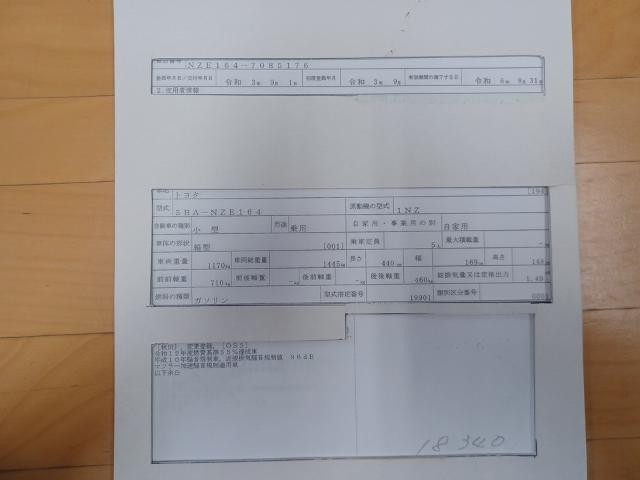 NZE164-7085176
登録年月日/交付年月日 令和 3年 9月 1日 初度登録年月 令和 3年 9月 有効期間の満了する日 令和 6年 8月 31日
2.使用者情報
トヨタ
型式 3BA-NZE164 原動機の型式 1NZ
自動車の種別 小型 用途 乗用 自家用・事業用の別 自家用
車体の形状 箱型 [001] 乗車定員 5人 最大積載量 -kg
車両重量 1170kg 車両総重量 1445kg 長さ 440cm 幅 169cm 高さ 148
前前軸重 710kg 前後軸重 -kg 後前軸重 -kg 後後軸重 460kg 総排気量又は定格出力 1.49
燃料の種類 ガソリン 型式指定番号 19901 類別区分番号
[秋田],変更登録,[OSS]
令和12年度燃費基準55%達成車
平成10年騒音規制車,近接排気騒音規制値 96dB
マフラー加速騒音規制適用車
以下余白
18340